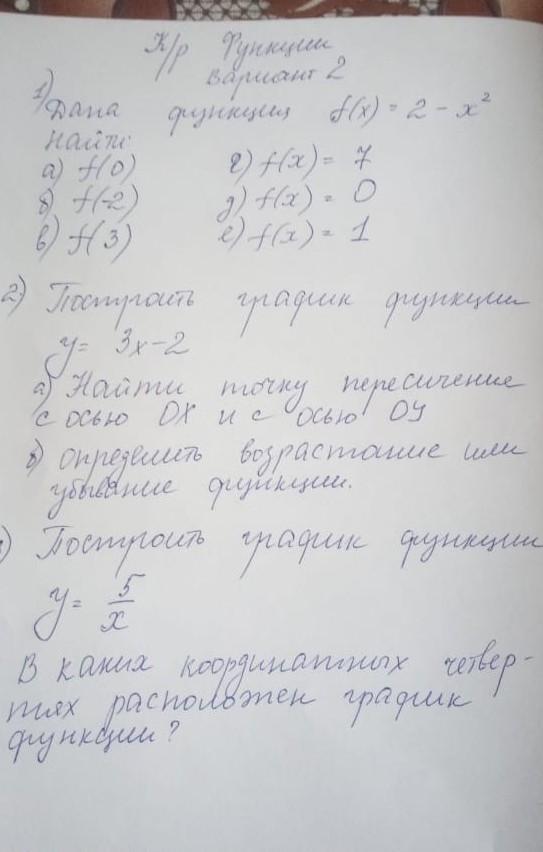 К/р Функции
Вариант 2
1) Дана функция f(x) = 2 - x²
Найти:
а) f(0) г) f(x) = 7
б) f(-2) д) f(x) = 0
в) f(3) е) f(x) = 1
2) Построить график функции
y = 3x-2
а) Найти точку пересичение
с осью ОХ и с осью ОУ
б) определить возрастание или
убывание функции.
) Построить график функции
y = 5/x
В каких координатных четвер-
тях расположен график
функции?